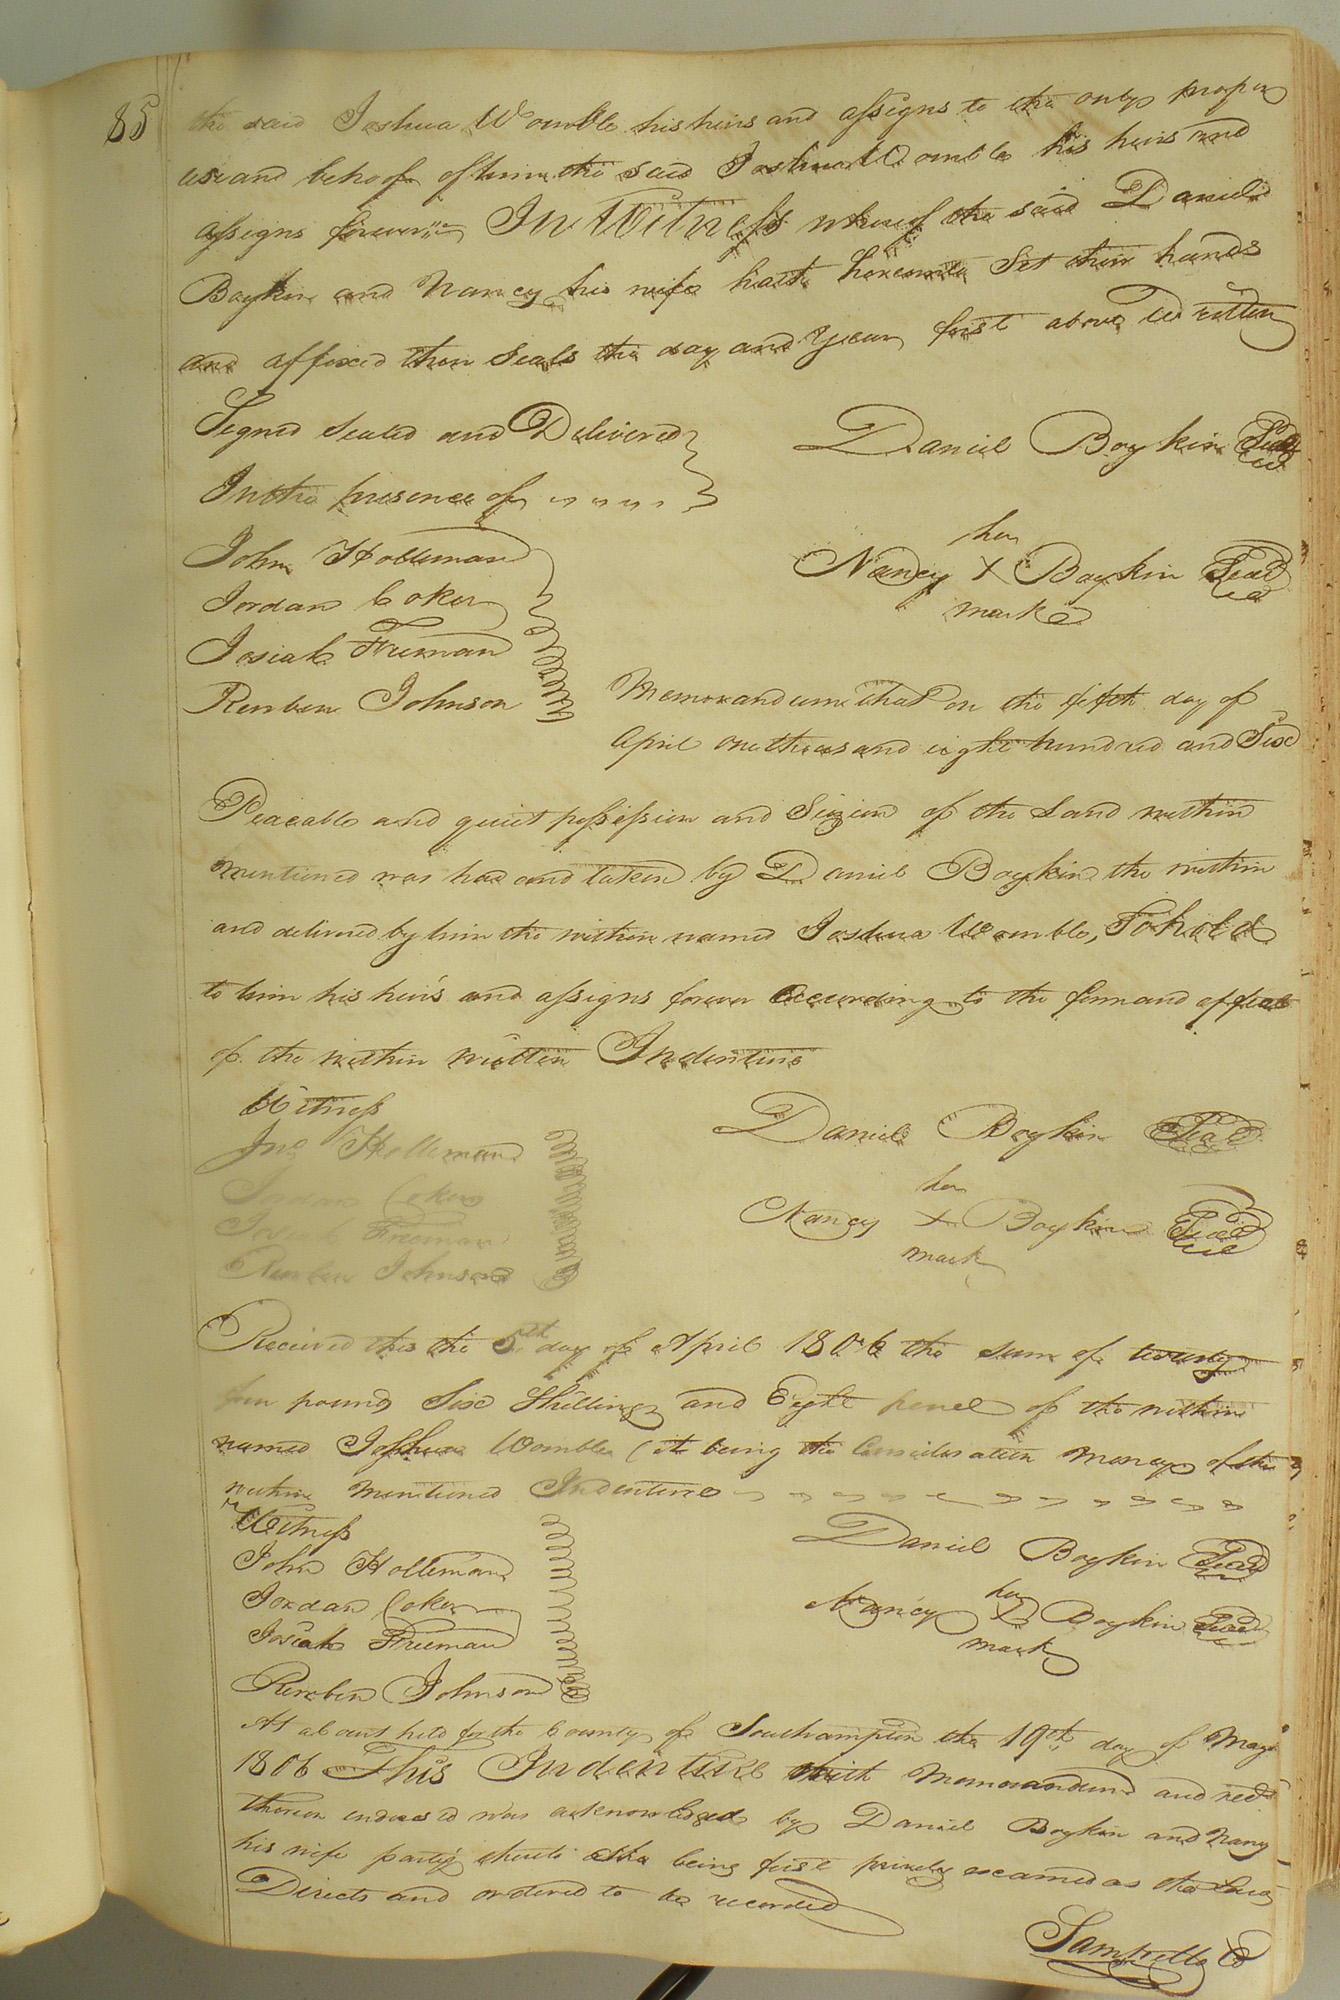 85
the said Joshua Womble his heirs and assigns to the only proper
use and behoof of him the said Joshua Womble his heirs and
assigns forever In Witness whereof the said Daniel
Boykin and Nancy his wife hath hereunto Set their hands
and affixed their Seals the day and year first above Written
Signed Sealed and Delivered
In the presence of
Daniel Boykin Seal
John Holleman
Jordan Coker
Josiah Freeman
Reuben Johnson
her
Nancy X Boykin Seal
mark
Memorandum that on the fifth day of
April one thousand eight hundred and Six
Peaceable and quiet possession and Seizion of the Land within
mentioned was had and taken by Daniel Boykin the within
and delivered by him the within named Joshua Womble, To hold
to him his heirs and assigns forever according to the form and effect
of the within written Indenture
Witness
Jno Holleman
Jordan Coker
Josiah Freeman
Reuben Johnson
Daniel Boykin Seal
her
Nancy X Boykin Seal
mark
Received this the 5th day of April 1806 the sum of twenty
pound Six Shillings and Eight pence of the within
named Joshua Womble (it being the Consideration money of the
within mentioned Indenture
Witness
John Holleman
Jordan Coker
Josiah Freeman
Reuben Johnson
Daniel Boykin Seal
her
Nancy X Boykin Seal
mark
At a Court held for the County of Southampton the 19th day of May
1806 This Indenture with Memorandum and recd
thereon endorsed was acknowledged by Daniel Boykin and Nancy
his wife party thereto she being first privily examed as the Law
Directs and ordered to be recorded
Saml Kello CC